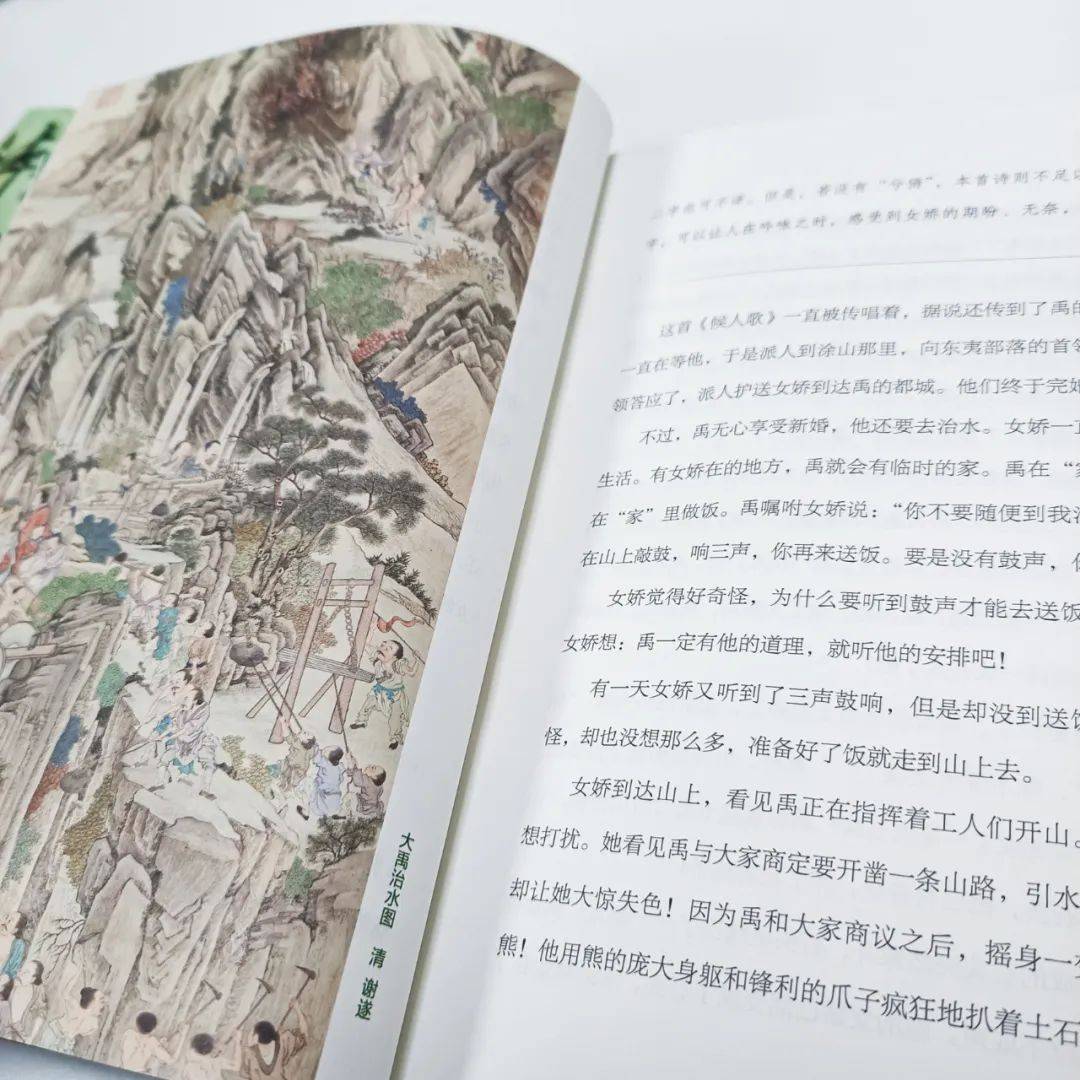 大禹治水图 清 谢遂
字也可不译。但是，若没有“兮猗”，本首诗则不足以
字，可以让人在吟咏之时，感受到女娇的期盼、无奈，
这首《候人歌》一直被传唱着，据说还传到了禹的
一直在等他，于是派人到涂山那里，向东夷部落的首领
领答应了，派人护送女娇到达禹的都城。他们终于完婚
不过，禹无心享受新婚，他还要去治水。女娇一直
生活。有女娇在的地方，禹就会有临时的家。禹在“家
在“家”里做饭。禹嘱咐女娇说：“你不要随便到我治
在山上敲鼓，响三声，你再来送饭。要是没有鼓声，你
女娇觉得好奇怪，为什么要听到鼓声才能去送饭
女娇想：禹一定有他的道理，就听他的安排吧！
有一天女娇又听到了三声鼓响，但是却没到送饭
怪，却也没想那么多，准备好了饭就走到山上去。
女娇到达山上，看见禹正在指挥着工人们开山。
想打扰。她看见禹与大家商定要开凿一条山路，引水
却让她大惊失色！因为禹和大家商议之后，摇身一变
熊！他用熊的庞大身躯和锋利的爪子疯狂地扒着土石